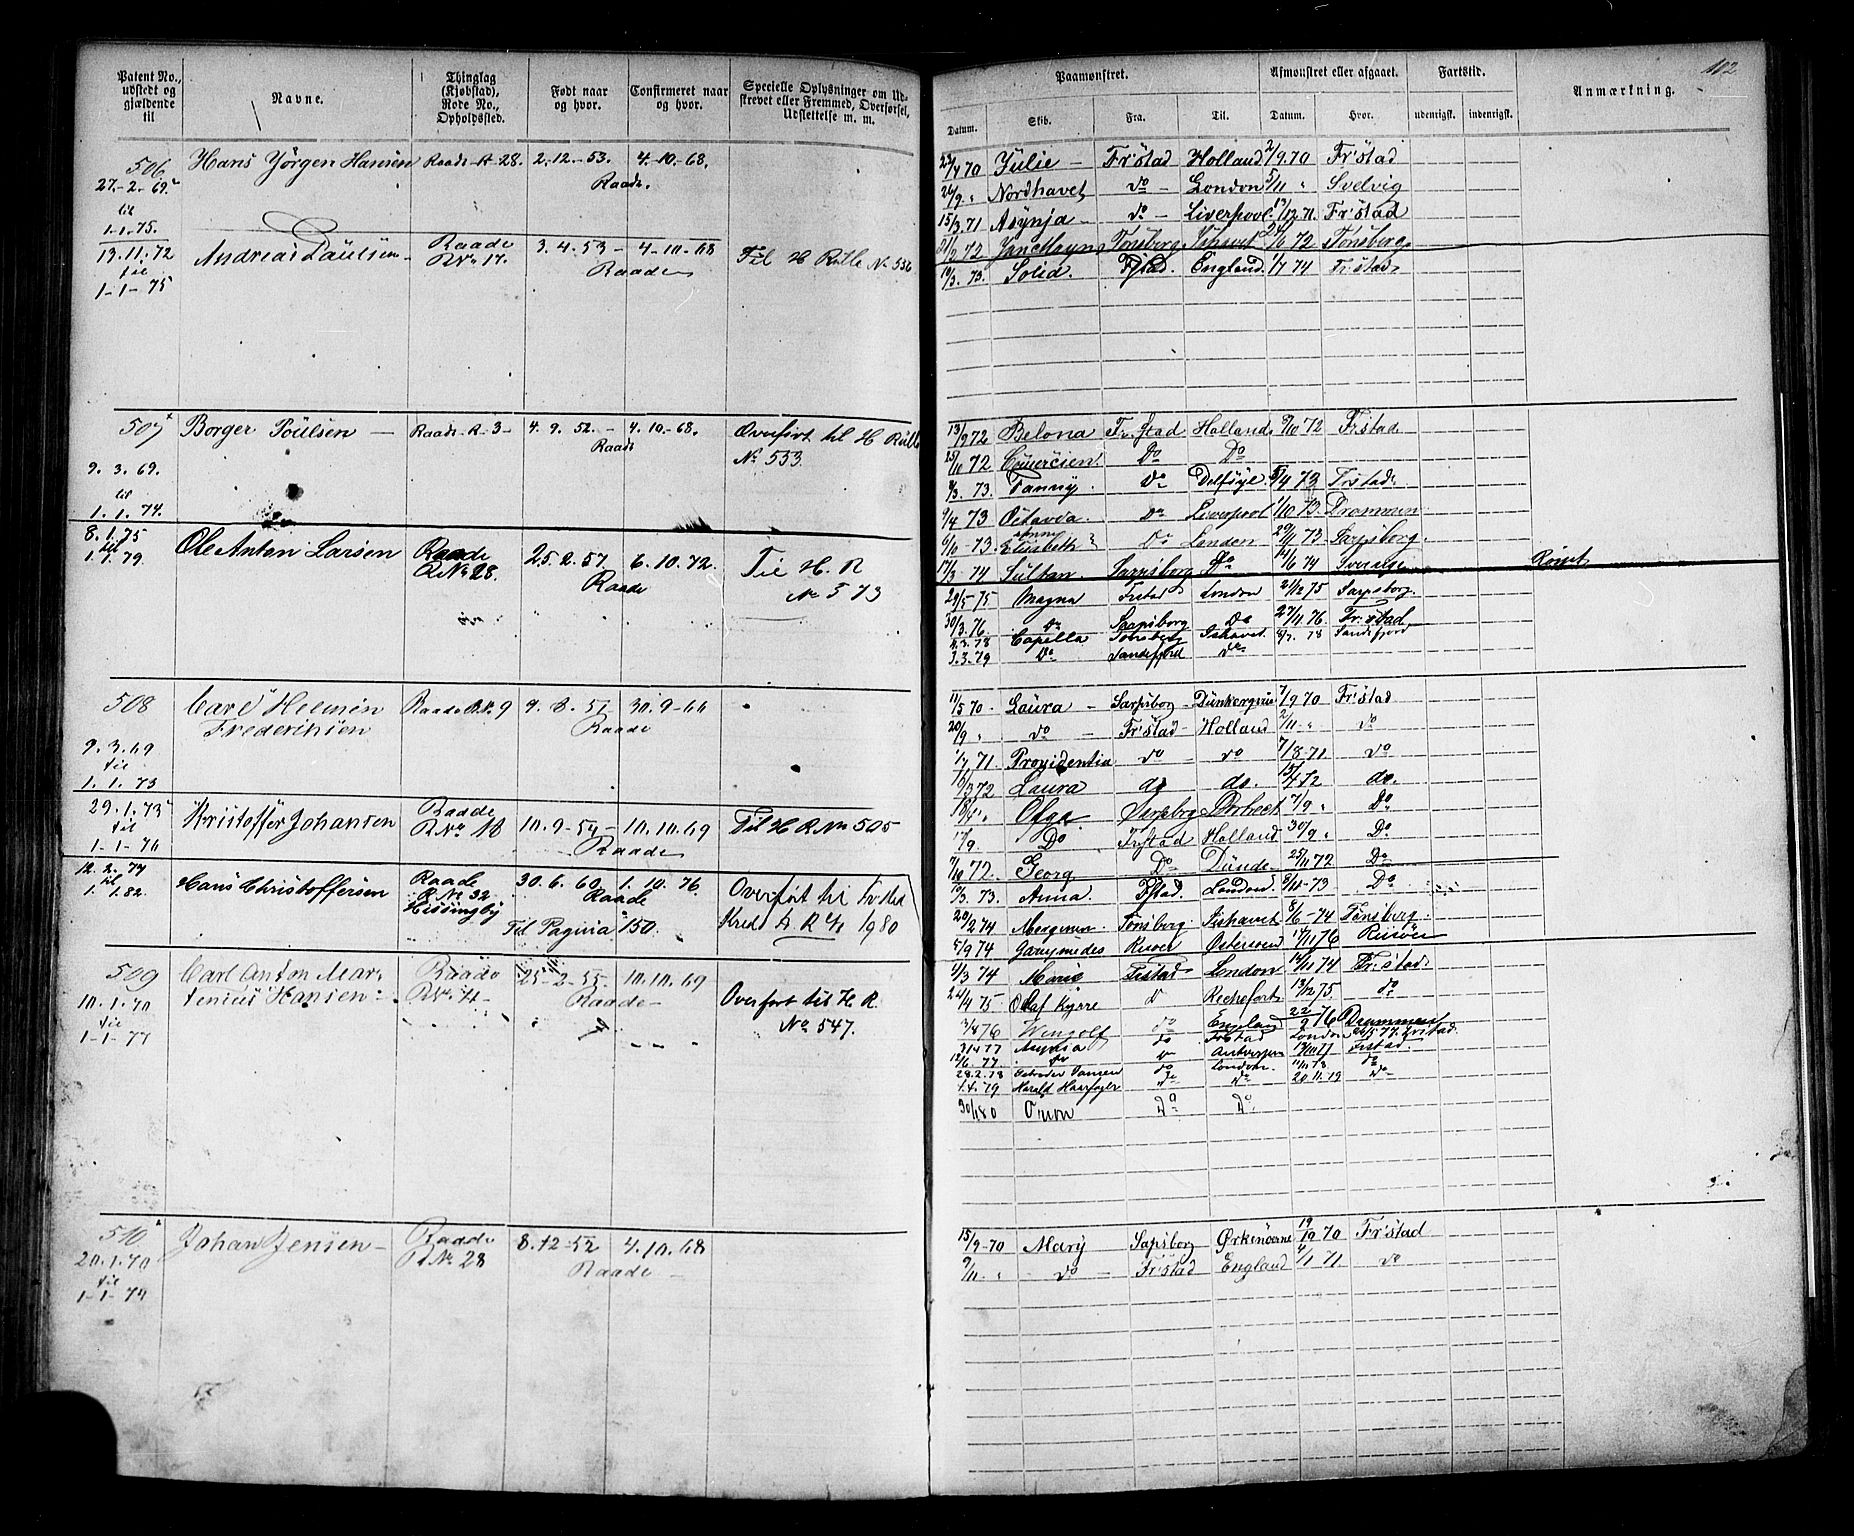 102
Patent No., udstedt og gjældende til
Navne.
Thinglag (Kjøbstad), Rode No., Opholdssted.
Født naar og hvor.
Confirmeret naar og hvor.
Specielle Oplysninger om Udskrevet eller Fremmed, Overførsel, Udslettelse m. m.
Paamønstret.
Datum. Skib. Fra. Til.
Afmønstret eller afgaaet.
Datum. Hvor.
Fartstid.
udenrigsk. indenrigsk.
Anmærkning.
506 Hans Jörgen Hansen Raade R 28. 2-12-53. 4-10-68.
Raade.
27-2-69
til
1-1-75.
13.11.72 Andreas Paulsen Raade 3.4.53 - 4-10-68 Til H Rulle No 536
til R No 17. Raade
1-1-75
507 Borger Poulsen - Raade R 3 - 4.9.52. - 4-10-68. Overført til H Rulle
Raade No 533.
9.3.69.
til
1.1.74.
8.1.75 Ole Anton Larsen Raade 25.2.57. 6.10.72. Til H. R
til R No 28. Raade No 573
1.1.79.
508 Carl Herman Raade R.No. 9 9-8-51- 30.9-66
Frederiksen Raade
9.3.69
til
1.1.73
29.1.73 Kristoffer Johansen Raade 10.9-54- 10.10.69 Til H R No 505
til R No 18 Raade
1-1-76
12.2.77 Hans Christoffersen Raade 30.6.60. 1.10.76. Overført til
til R No 32 Raade
1.1.82. Til Pagina 150. 1980
509 Carl Anton Martenius Hansen Raade 25-2-55- 10.10.69 Overført til H. R.
R No 4 - Raade - No 547.
10.1.70
til
1-1-77
510 Johan Jensen - Raade 8.12-52 4.10.68
R No 28 Raade -
20.1.70
til
1-1-74
23/4 70 Julie - Fr.stad Holland 2/9.70 Fr.stad
26/9 " Nordhavet do - London 5/11 " Svelvig
15/3.71 Asynja - do - Liverpool 13/12.71. Fr.stad
72 Jan Mayn Tønsberg Ishavet 72 Tønsberg
19/3.73. Solid. F.stad. England 1/7 74 Fr.stad
13/9 72 Belona Fr.stad Holland 9/10 72 Fr.stad
25/11 72 Do Do
9/3. 73. Fanny. Do Delfsyl. 5/4 73 Frstad
9/4 73 Octavia. Do Liverpool 1/10 73. Drammen
6/10-73 Anne Elisabeth Do London 29/11 73 Sarpsborg.
17/3 74 Sultan. Sarpsborg Do 14/6 74 Sverige Rømt
29/5 75 Magna Frstad London 21/12 75 Sarpsborg.
30/3.76 Do Sarpsborg Do 27/11 76 Fr.stad
78 Capella Tønsberg Ishavet. 78 Sandefjord
3.3.79 Do Sandefjord Do
11/5 70. Laura - Sarpsborg - 7/9 70 Fr.stad
20/9 " do - Fr.stad - Holland 2/11 - " do
1/7 71. Providentia do - do 7/8-71 do
72 Laura do do. 72 do.
Olga. Sarpsborg Dortrect 7/9 " Do
17/9. Do Frstad Holland 30/9 " Do
7/10 72. Georg Do Dundee 25/11 72 Do
19/3. 73. Anna. F.stad. London 8/11-73 Do
20/2 74 Tønsberg Ishavet 8/6-74 Tønsberg.
5/9 74 Ganymedes Risøer Østersøen 76 Risöer
9/3 74 Marie Frstad London 14/11 74 Fr.stad
24/4 75 Olaf Kyrre do Rochefort 13/12 75 do
3/4 76 Wingolf do England 22/9 76 Drammen
77 Asynia do Frstad London Fristad.
13/6. 77. do do Antverpen 77 Frstad.
28.2.78 do London. 11/11 78 do
1.4.79 Harald Haarfager do do 20.11.79 do
30/1 80 Orion Do Do
15/9-70 Mary Sapsborg Ørkenøerne 19/10 70 Fr.stad
9/11. " do - Fr.stad England 4/1 71. do